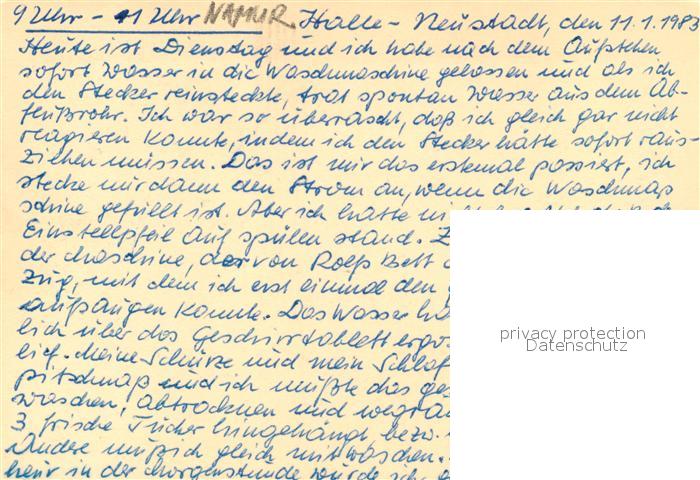 9 Uhr - 11 Uhr NAMUR Halle - Neustadt, den 11.1.1983
Heute ist Dienstag und ich habe nach dem Aufstehen
sofort Wasser in die Waschmaschine gelassen und als ich
den Stecker reinsteckte, trat spontan Wasser aus dem Ab-
flußrohr. Ich war so überrascht, daß ich gleich gar nicht
reagieren konnte, indem ich den Stecker hätte sofort raus-
ziehen müssen. Das ist mir das erstemal passiert, ich
stecke nur dann den Strom an, wenn die Waschmas
schine gefüllt ist. Aber ich hatte
Einstellpfeil auf spülen stand.
der Maschine, der von Rolfs Bett
zug, mit dem ich erst einmal den
aufsaugen konnte. Das Wasser
lich über das Geschirrtablett ergos
lief. Meine Schürze und mein Schlaf
pitschnaß und ich mußte das
waschen, abtrocknen und wegräu
3 frische Tücher hingehängt, bezw.
Andere muß ich gleich mitwaschen.
heur in der Morgenstunde wurde ich
privacy protection
Datenschutz